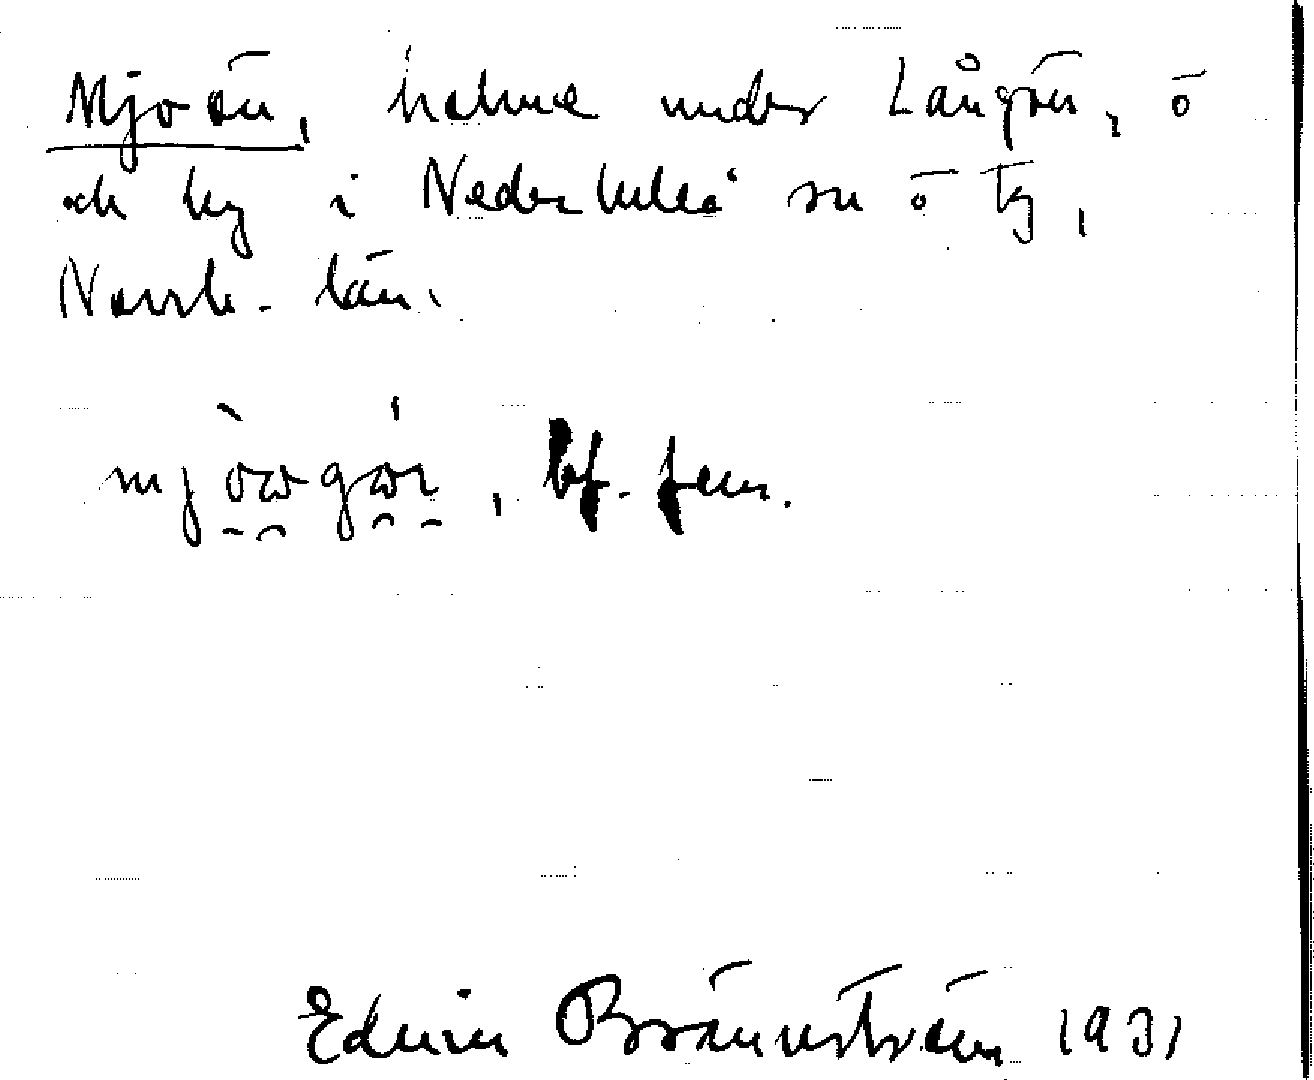 Mjoön, holme under Långön, ö
och by i Nederluleå sn ö tg,
Norrb. län.
mjòwgön, bf. fem.
Edvin Brännström 1931